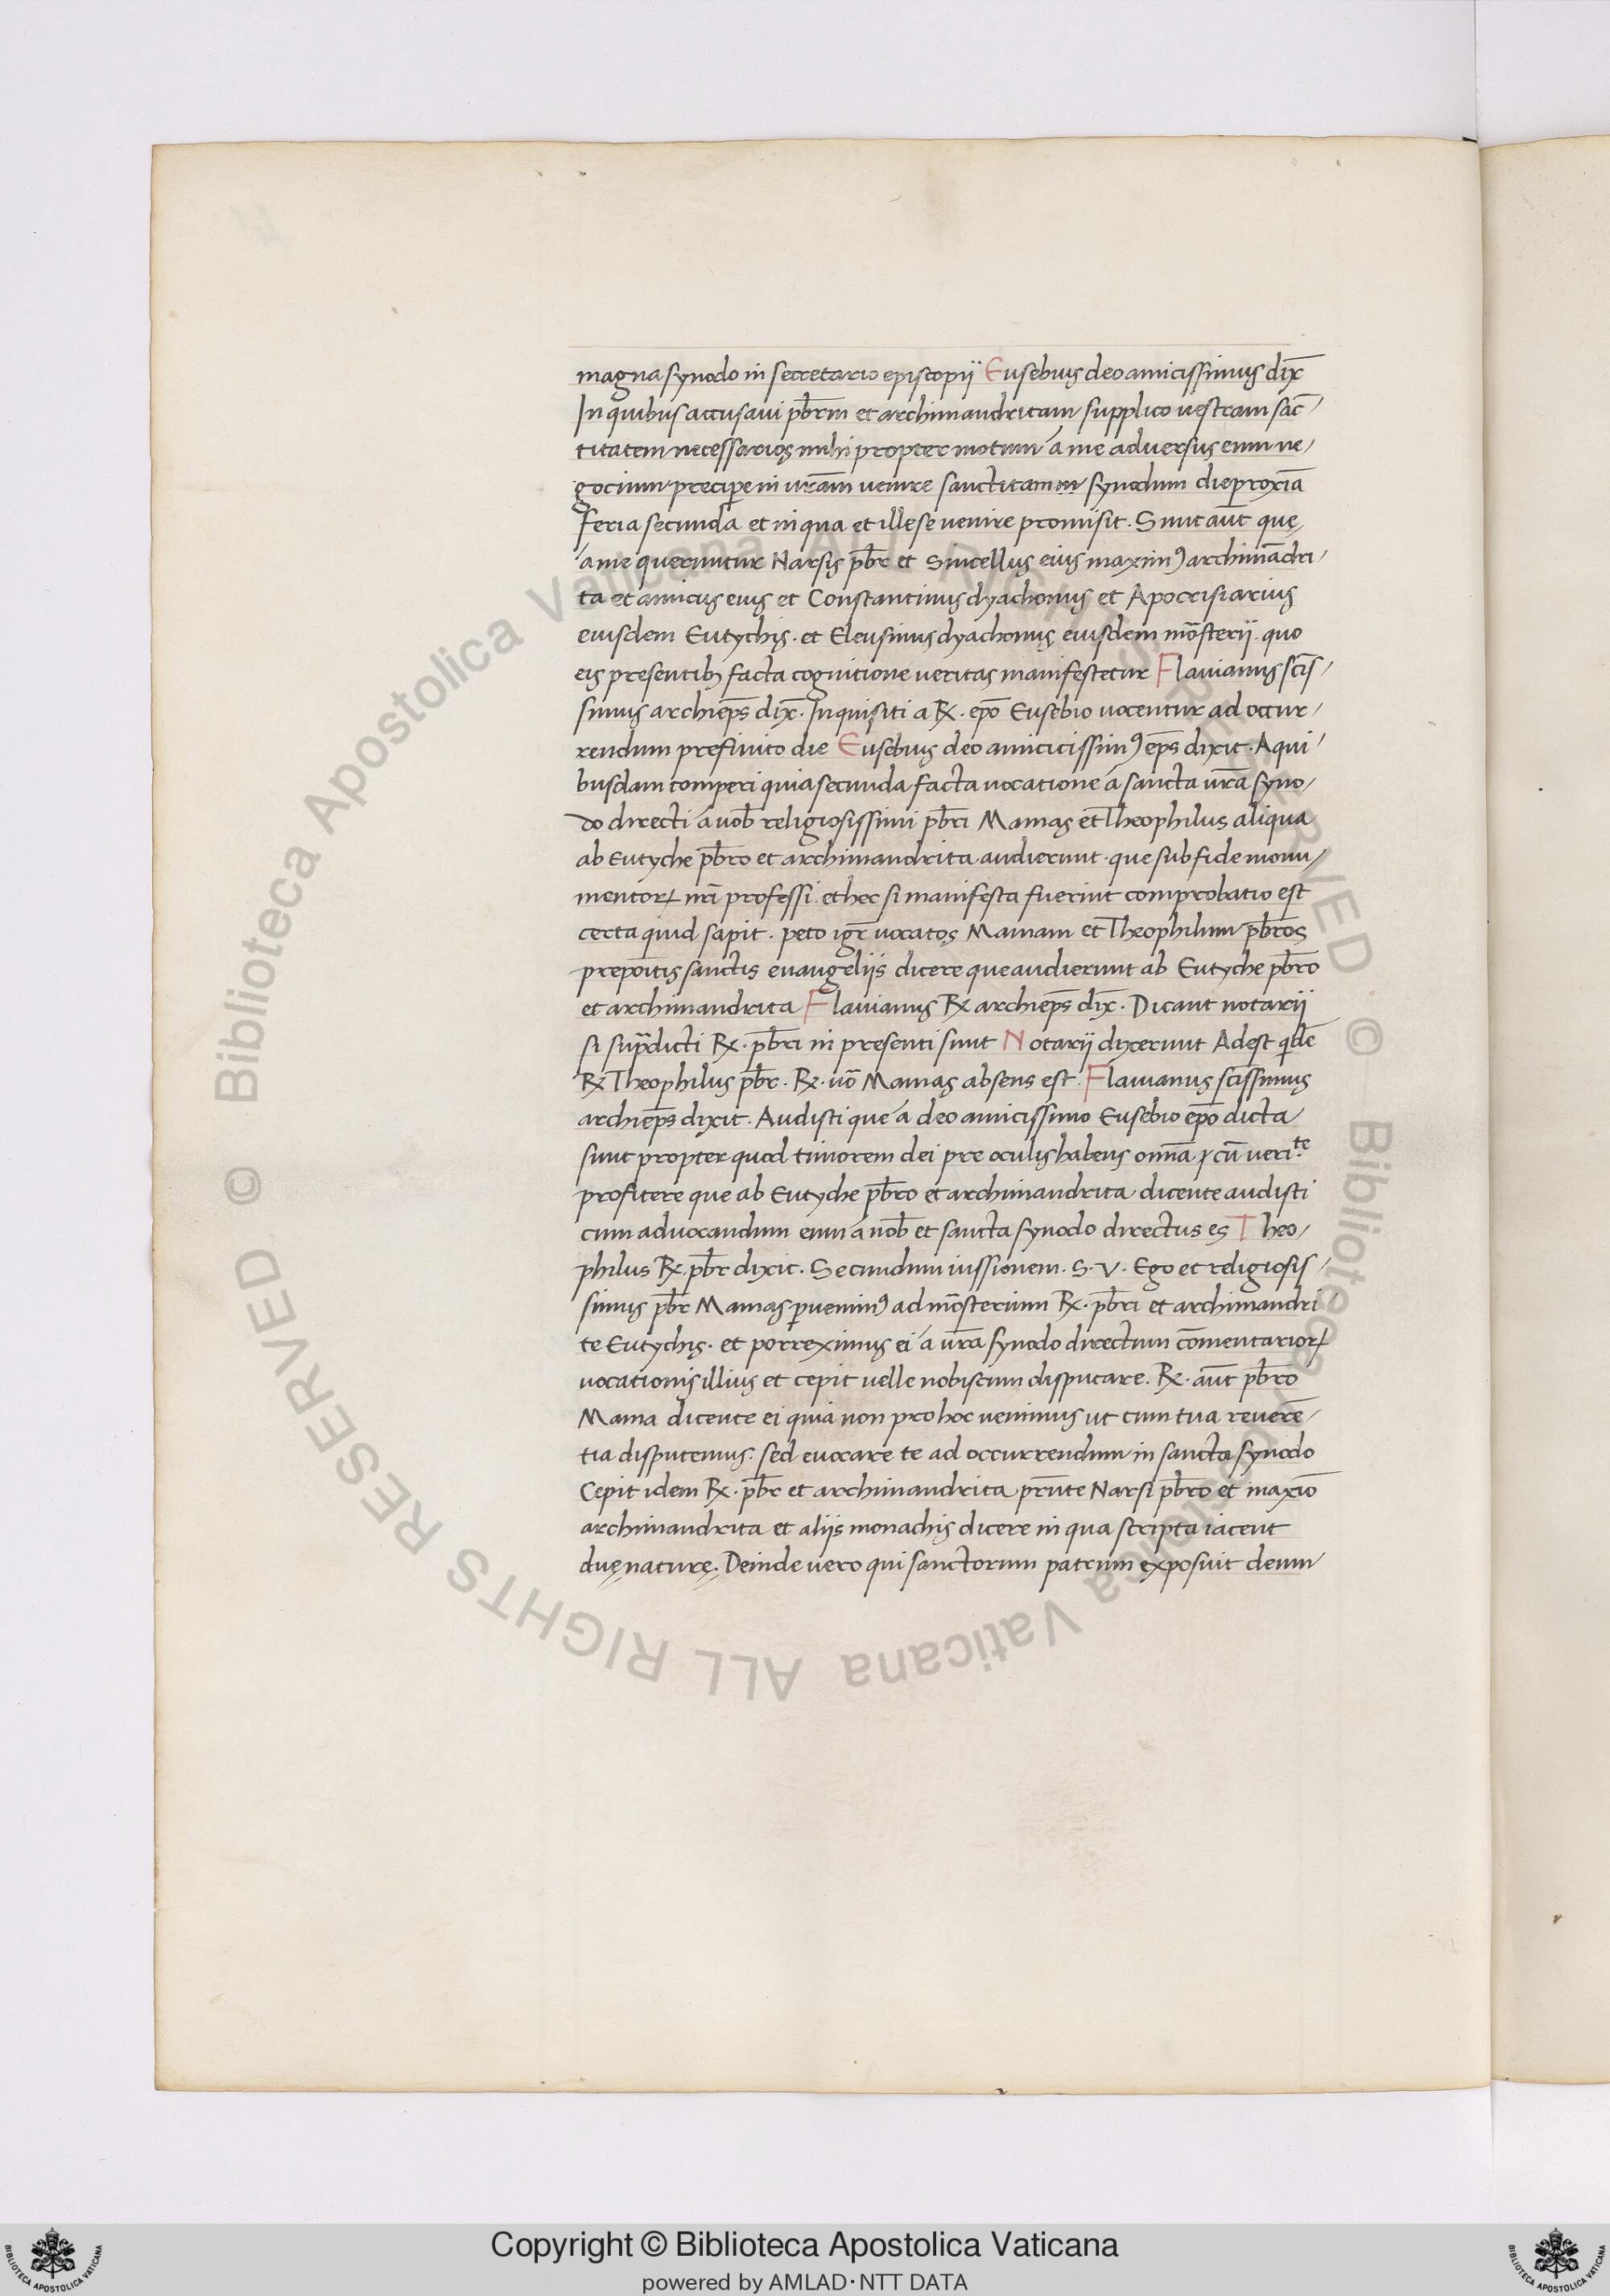 magna synodo in secretario episcopii Eusebius deo amicissimus dix̅
In quibus accusaui pb̅rm et archimandritam supplico uestram sac̅
titatem necessarios mihi propter motum a me aduersus eum ne
gocium precip̲e in ur̅am uenire sanctitatem synodum die proxi̅a
feria secunda et in qua et ille se uenire promisit. Sunt au̅t quę
a me queruntur Narsis pb̅r et Sincellus eius maximꝰ archima̅dri
ta et amicus eius et Constantinus dyachonus et Apocrisiarius
eiusdem Eutychis. et Eleusinus dyachonus eiusdem mo̅sterii. quo
eis presentibꝫ facta cognitione ueritas manifestetur Flauianus sc̅is
simus archiep̅s dix̅. Inquisiti a ℞. ep̅o Eusebio uocentur ad occur
rendum prefinito die Eusebius deo amicicissimꝰ ep̅s dixit. A qui
busdam comperi quia secunda facta uocatione a sancta ur̅a syno
do directi a uob̅ religiosissimi pb̅ri Mamas et Theophilus aliqua
ab Eutyche pb̅ro et archimandrita audierunt. que sub fide monu
mentoꝝ nr̅i professi. et hec si manifesta fuerint comprobatio est
certa quid sapit. peto igr̅ uocatos Mamam et Theophilum pb̅ros
prepoi̅tis sanctis euangeliis dicere que audierunt ab Eutyche pb̅ro
et archimandrita Flauianus ℞ archiep̅s dix̅. Dicant notarii
si sup̅dicti ℞. pb̅ri in presenti sunt Notarii dixerunt Adest qide̅
℞ Theophilus pb̅r. ℞. uo̅ Mamas absens est. Flauianus sc̅issimus
archiep̅s dixit. Audisti que a deo amicissimo Eusebio ep̅o dicta
sunt propter quod timorem dei pre oculis habens omi̅a cu̅ ueri.te
profitere que ab Eutyche pb̅ro et archimandrita dicente audisti
cum aduocandum eum a nob̅ et sancta synodo directus es Theo
philus ℞. pb̅r dixit. Secundum iussionem. S. V. Ego et religiosis
simus pb̅r Mamas ꝑueminꝰ ad mo̅sterium ℞. pb̅ri et archimandri
te Eutychis. et porreximus ei a ur̅a synodo directum co̅mentarioꝝ
uocationis illius et cepit uelle nobiscum disputare. ℞. au̅t pb̅ro
Mama dicente ei quia non pro hoc uenimus ut cum tua reuere̅
tia disputemus. sed euocare te ad occurrendum in sancta synodo
Cepit idem ℞. pb̅r et archimandrita prn̅te Narsi pb̅ro et maxi̅o
archimandrita et aliis monachis dicere in qua scripta iacent
duę naturę. Deinde uero qui sanctorum patrum exposuit deum
© Biblioteca Apostolica Vaticana ALL RIGHTS RESERVED
© Biblioteca Apostolica Vaticana ALL RIGHTS RESERVED
Copyright © Biblioteca Apostolica Vaticana
powered by AMLAD·NTT DATA
BIBLIOTECA APOSTOLICA VATICANA
BIBLIOTECA APOSTOLICA VATICANA